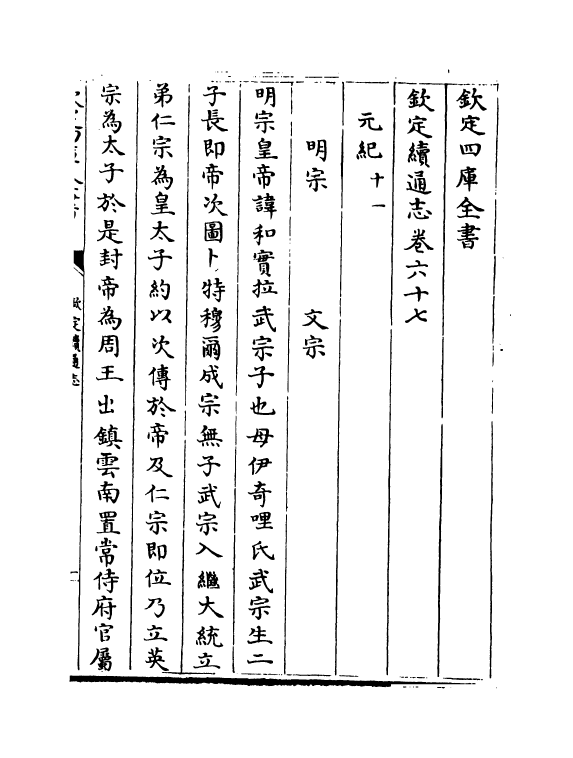 欽定四庫全書
欽定續通志卷六十七
元紀十一
明宗　文宗
明宗皇帝諱和實拉武宗子也母伊奇哩氏武宗生二
子長即帝次圖卜特穆爾成宗無子武宗入繼大統立
弟仁宗為皇太子約以次傳於帝及仁宗即位乃立英
宗為太子於是封帝為周王出鎮雲南置常侍府官屬
欽定續通志